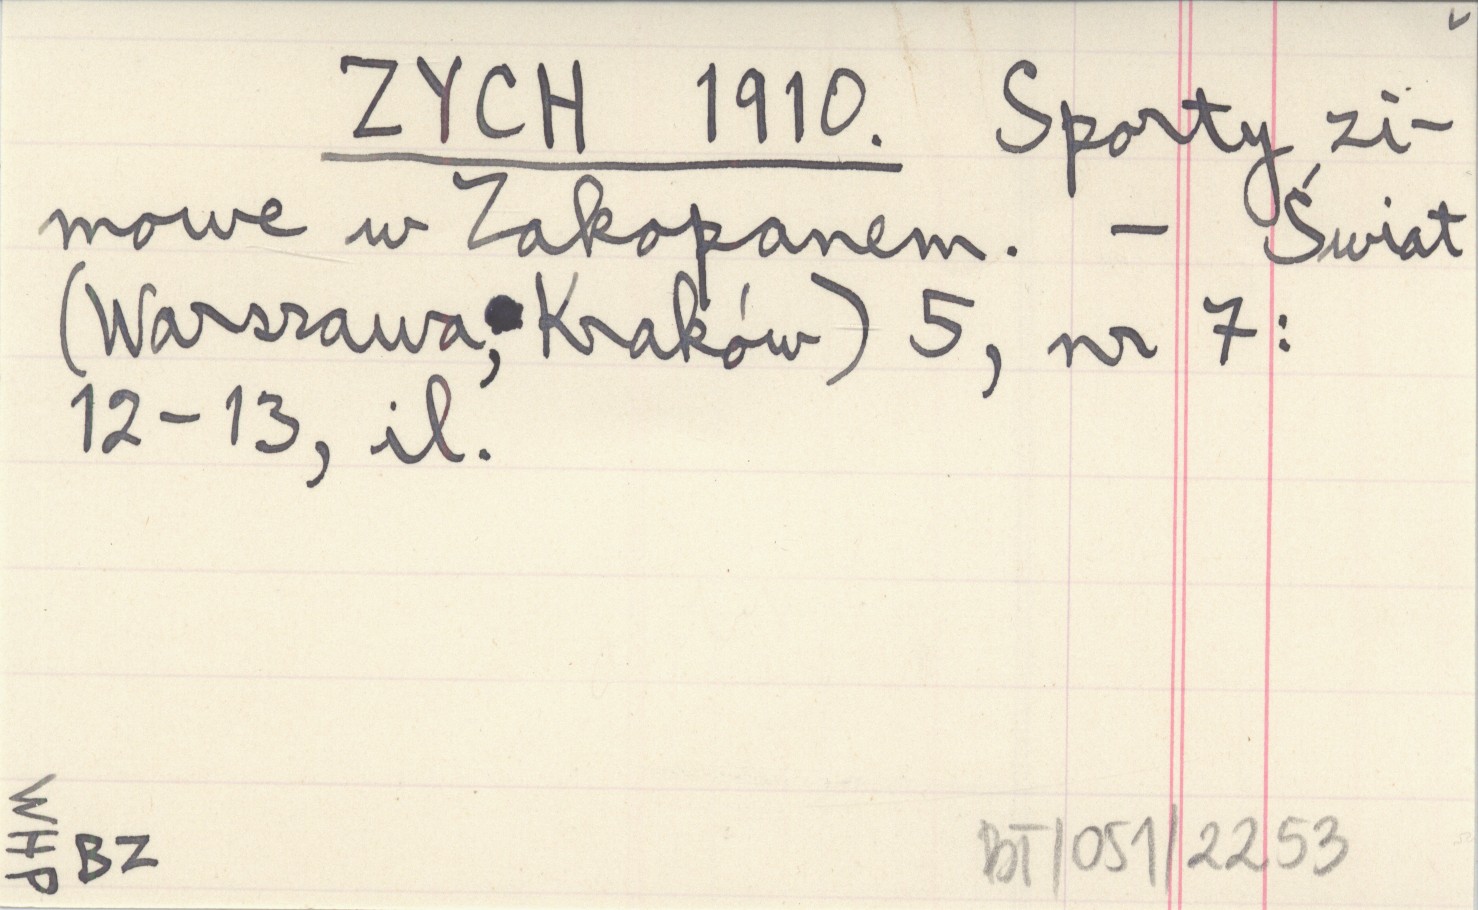 ZYCH 1910. Sporty zi-
mowe w Zakopanem. - Świat
(Warszawa, Kraków) 5, nr 7:
12-13, il.
WHP
BZ
BT/051/2253